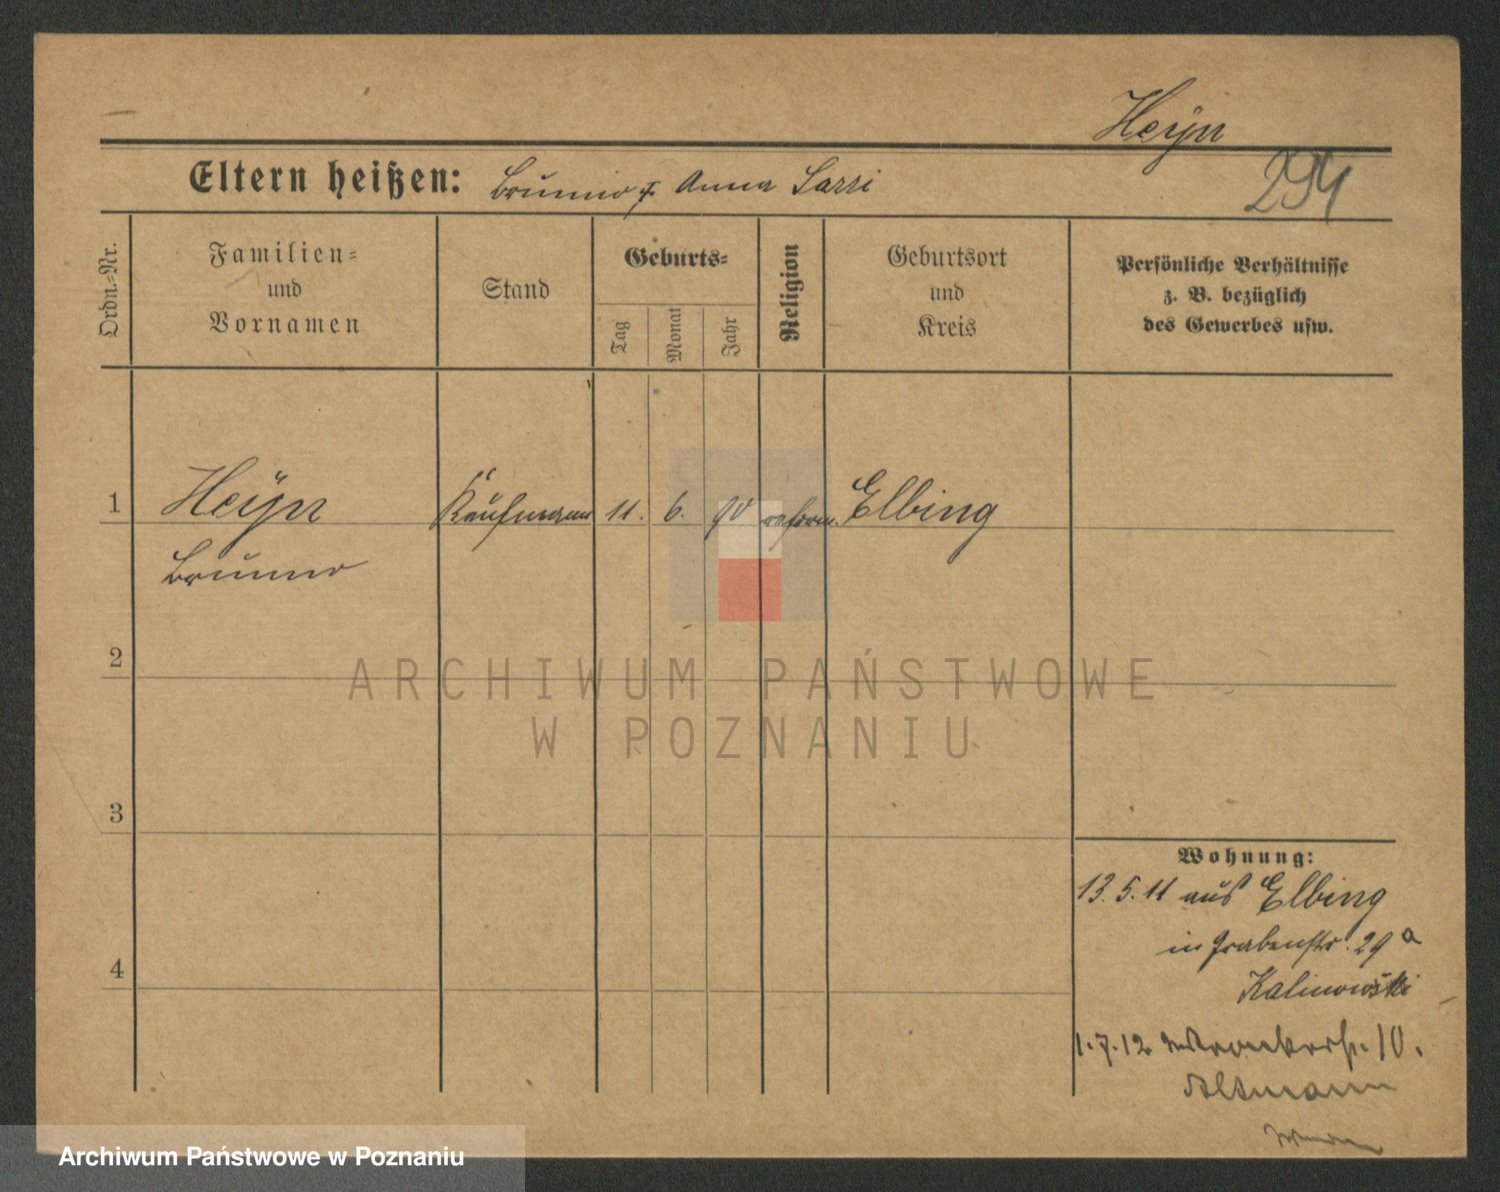 Heyn
294
Eltern heißen: Brunno & Anna Sarri
Ordn.-Nr.
Familien-
und
Vornamen
Stand
Geburts-
Tag
Monat
Jahr
Religion
Geburtsort
und
Kreis
Persönliche Verhältnisse
z. B. bezüglich
des Gewerbes usw.
1 Heyn Kaufmann 11. 6. 90 reform. Elbing
Brunno
2
3
4
Wohnung:
13.5.11 aus Elbing
in Grabenstr. 29 a
Kalinowski
1.7.12 10.
Altmann
ARCHIWUM PAŃSTWOWE
W POZNANIU
Archiwum Państwowe w Poznaniu